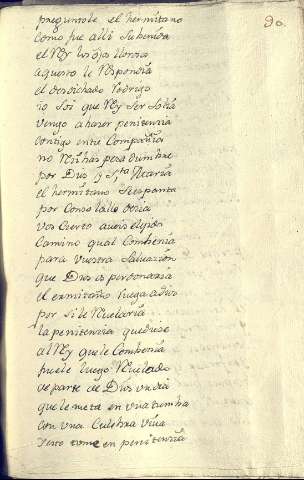 90.
preguntole el hermitano
como fue alli su benida
el Rey los ojos llorosos
aquesto le Respondia
el desdichado Rodrigo
io soi que Rey ser solia
vengo a hazer penitencia
contigo en tu compañia
no Reçibas pesadumbre
por Dios y Sta Maria
el hermitano se espanta
por consolallo deçia
vos cierto aueis elejido
camino qual conbenia
para vuestra saluacion
que Dios os perdonaria
el ermitaño ruega a dios
por si le Reuelaria
la penitencia que diese
al Rey que le conbenia
fuele luego Reuelado
de parte de Dios un dia
que le meta en una tumba
con una culebra viua
y esto tome en penitencia